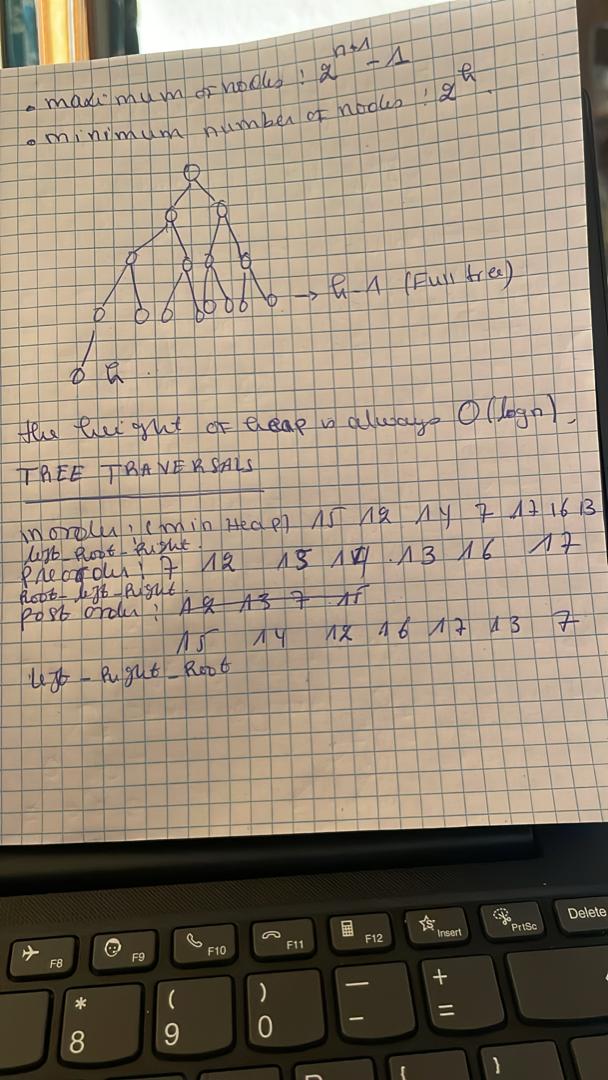 • maximum of nodes : 2^n+1 - 1
• minimum number of nodes : 2^h.
→ h-1 (Full tree)
h
the height of heap is always O(logn).
TREE TRAVERSALS
inorder : (min Heap) 15 12 14 7 17 16 13
left_Root-Right.
Preorder : 7 12 15 14 13 16 17
Root-left-Right.
post order : 12 13 7 15
15 14 12 16 17 13 7
left - Right - Root
F8 F9 F10 F11 F12 Insert PrtSc Delete
* ( ) — +
8 9 0 - =
P { }